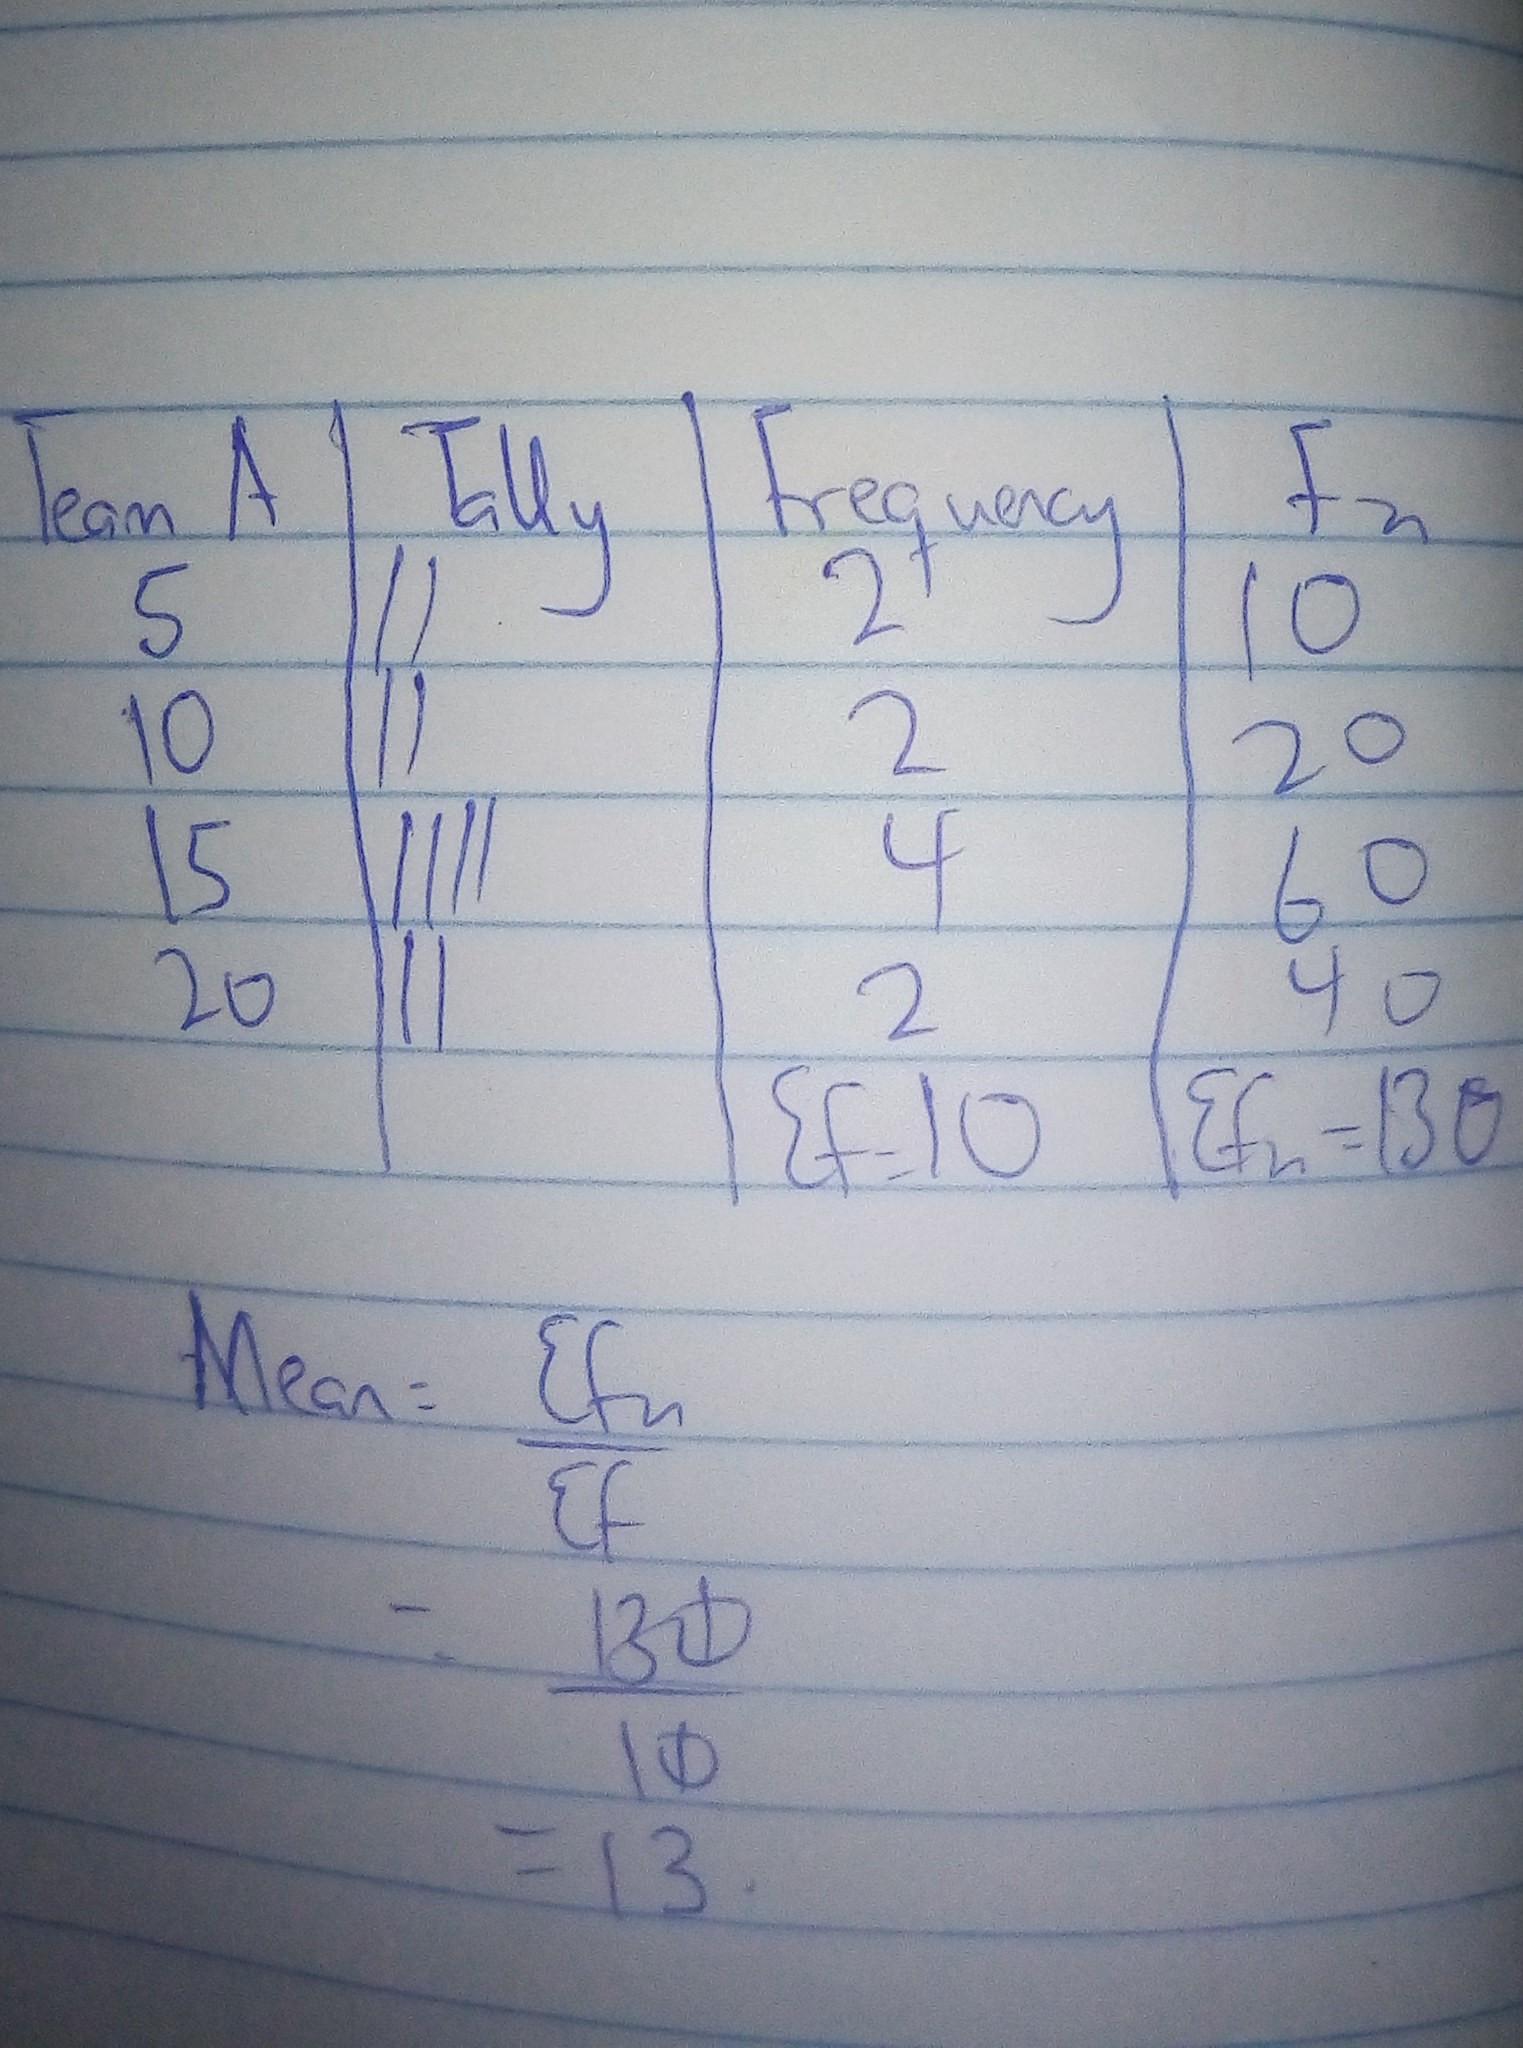 Team A Tally Frequency Fx
5 || 2 10
10 || 2 20
15 |||| 4 60
20 || 2 40
Σf=10 Σfx=130
Mean= Σfx
Σf
= 130
10
=13.